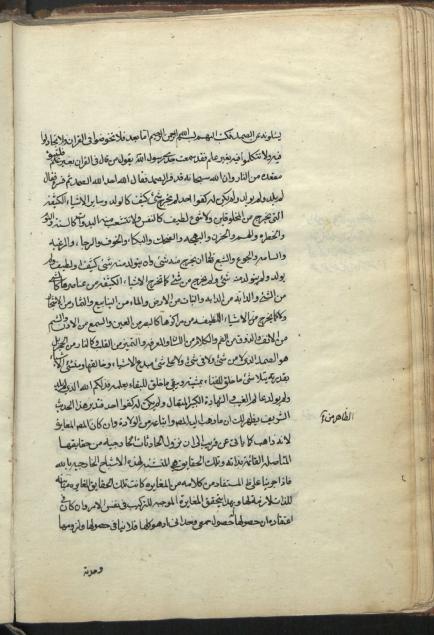 يسئلونه عن الصمد فكتب اليهم بسم الله الرحمن الرحيم اما بعد فلا تخوضوا في القران ولا تجادلوا
فيه ولا تتكلموا فيه بغير علم فقد سمعت جدي رسول الله يقول من قال في القران بغير علم فليتبوء
مقعده من النار وان الله سبحانه قد فسر الصمد فقال الله احد الله الصمد ثم فسره فقال
لم يلد ولم يولد ولم يكن له كفوا احد لم يخرج منه شئ كثيف كالولد وساير الاشياء الكثيفة
التي تخرج من المخلوقين ولا شئ لطيف كالنفس ولا تتشعب منه البدوات كالسنة والنوم
والخطرة والهم والحزن والبهجة والضحك والبكاء والخوف والرجاء والرغبة
والسامة والجوع والشبع تعالى ان يخرج منه شئ وان يتولد منه شئ كثيف او لطيف ولم
يولد ولم يتولد من شئ ولم يخرج من شئ كما تخرج الاشياء الكثيفة من عناصرها كالشئ
من الشئ والدابة من الدابة والنبات من الارض والماء من الينابيع والثمار من الاشجار
ولا كما يخرج من الاشياء اللطيفة من مراكزها كالبصر من العين والسمع من الاذن والشم
من الانف والذوق من الفم والكلام من اللسان والمعرفة والتميز من القلب وكالنار من الحجر لا بل
هو الصمد الذي لا من شئ ولا في شئ ولا على شئ مبدع الاشياء وخالقها ومنشئ الاشياء
بقدرته يتلاشى ما خلق للفناء بمشيته ويبقى ما خلق للبقاء بعلمه فذلكم الله الذي لم يلد
ولم يولد عالم الغيب و الشهادة الكبير المتعال ولم يكن له كفوا احد فتدبر هذا الحديث
الشريف يظهر لك ان ما ذهب اليه واتباعه من الولادة وان كان المعارف
لانه ذاهب كما ياتي عن قريب الى ان نزول الحادثات الخارجية من حقايقها
المتاصلة القائمة بذاته وتلك الحقايق هي المنشئة لهذه الاشباح الخارجية بالله
فاذا جرينا على ظاهر المستفاد من كلامه من المغايرة كانت تلك الحقايق المغايرة
للذات لازمة لها و بهذا يتحقق المغايرة الموجبة للتركيب في نفس الامر وان كان في
اعتقاده ان حصولها حصول جمعي وحداني اذ هو كلها فلا ينافي حصولها ولزومها
الظاهر منه
وحدته